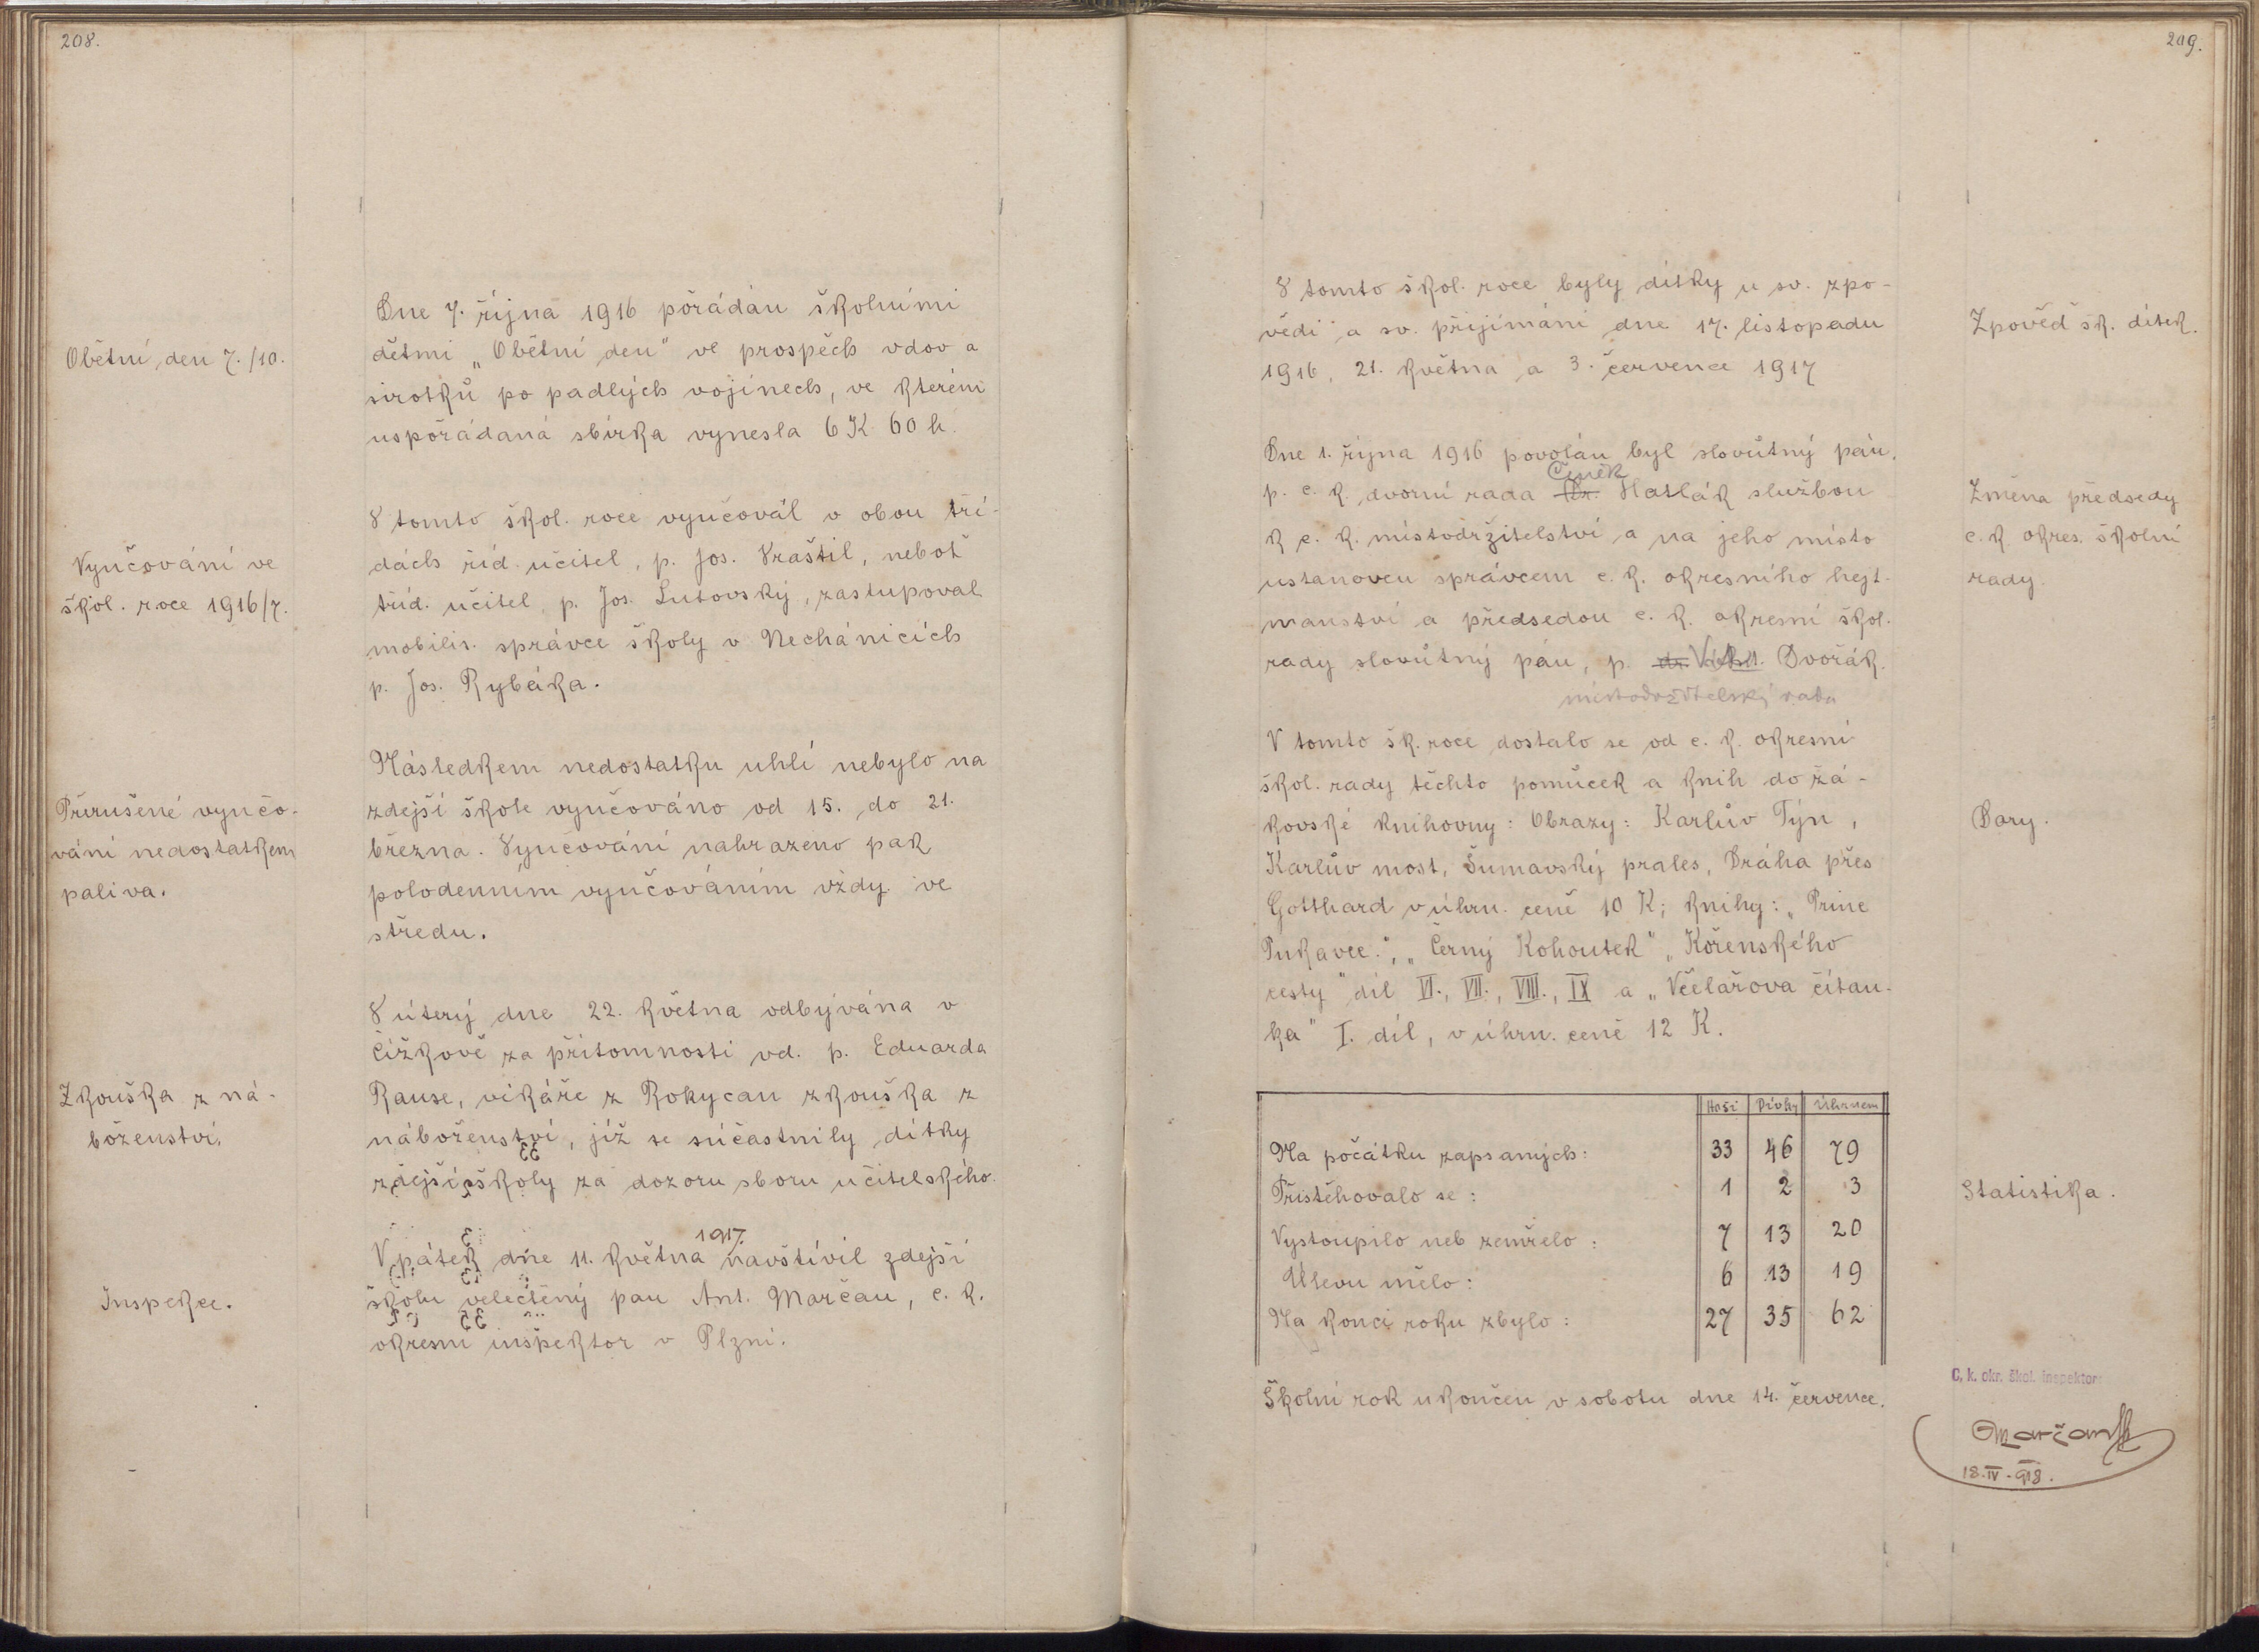 208.
Obětní den 7./10.
Dne 7. října 1916 pořádán školními
dětmi „Obětní den" ve prospěch vdov a
sirotků po padlých vojínech, ve kterém
uspořádaná sbírka vynesla 6 K 60 h.
Vyučování ve
škol. roce 1916/7.
V tomto škol. roce vyučovál v obou tří-
dách říd. učitel, p. Jos. Vraštil, neboť
tříd. učitel p. Jos. Lutovský, zastupoval
mobilis. správce školy v Nechánicích
p. Jos. Rybáka.
Přerušené vyučo-
vání nedostatkem
paliva.
Následkem nedostatku uhlí nebylo na
zdejší škole vyučováno od 15. do 21.
března. Vyučování nahrazeno pak
polodenním vyučováním vždy ve
středu.
Zkouška z ná-
boženství.
V úterý dne 22. května odbývána v
Čížkově za přítomnosti vd. p. Eduarda
Rause, vikáře z Rokycan zkouška z
náboženství, jíž se súčastnily dítky
zdejší školy za dozoru sboru učitelského.
Inspekce.
1917
V pátek dne 11. května navštívil zdejší
školu velectěný pan Ant. Marčan, c. k.
okresní inspektor v Plzni.
209.
V tomto škol. roce byly dítky u sv. zpo-
vědi a sv. přijímání dne 17. listopadu
1916, 21. května a 3. července 1917
Zpověď šk. dítek.
Dne 1. října 1916 povolán byl slovútný pán,
Čeněk
p. c. k. dvorní rada Dr. Hatlák službou
k c. k. místodržitelství a na jeho místo
ustanoven správcem c. k. okresního hejt-
manství a předsedou c. k. okresní škol.
rady slovútný pán, p. dr. Dvořák.
místodržitelský rada
Změna předsedy
c. k. okres. školní
rady.
V tomto šk. roce dostalo se od c. k. okresní
škol. rady těchto pomůcek a knih do žá-
kovské knihovny: Obrazy: Karlův Týn,
Karlův most, Šumavský prales, Dráha přes
Gotthard v úhrn. ceně 10 K; knihy: „Princ
Pukavec.", „Černý Kohoutek" „Kořenského
cesty" díl VI., VII., VIII., IX a „Včelařova čítan-
ka" I. díl, v úhrn. ceně 12 K.
Dary.
Hoši Dívky Úhrnem
Na počátku zapsaných: 33 46 79
Přistěhovalo se: 1 2 3
Vystoupilo neb zemřelo: 7 13 20
Úlevu mělo: 6 13 19
Na konci roku zbylo: 27 35 62
Statistika.
Školní rok ukončen v sobotu dne 14. července.
C. k. okr. škol. inspektor:
Marčan
18.IV.918.